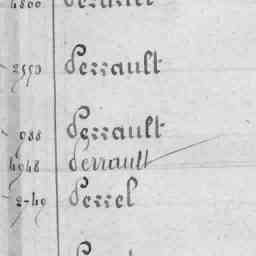 4800
2550 Perrault
988 Perrault
4948 Perrault
2749 Perrel